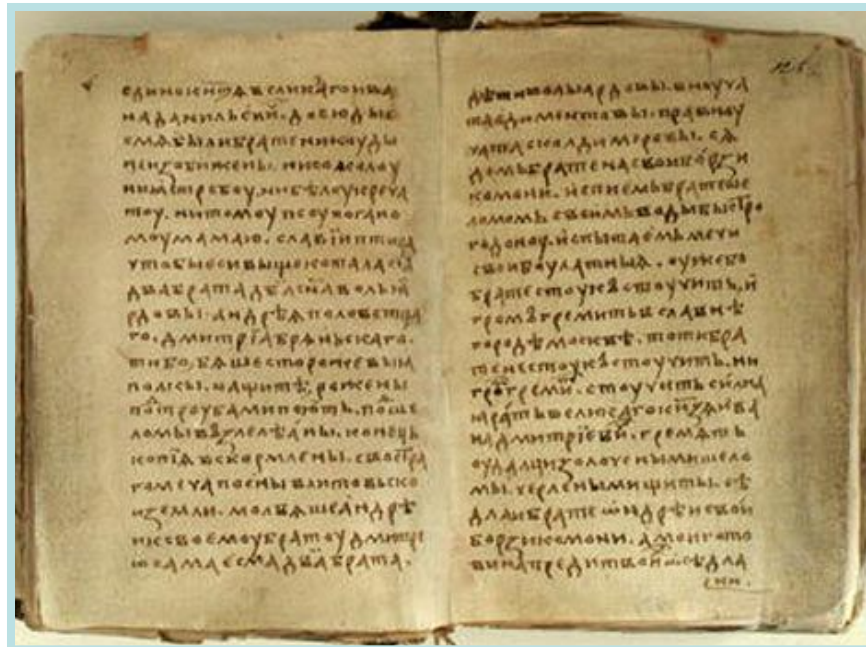 единокнѧзѧвеликагоива
наданильеви. довюдые
смѧбылибратеникоуды
неизобижены. нисоколоу
ниꙗстребоу. нибѣлоукреча
тоу. нитомоупсоупогано
моумамаю. славїиптица
чтобыесивыщекоталасиа
двабратадвасн҃аволъꙗ
рдовы. андрѣꙗполовецка
го. дмитрїабрꙗньскаго.
тибо, бꙗшесторожевыа
полкы. нащитѣ, рожены
потроубамипоють. поше
ломывъзлелѣаны. конець
копїавскормлены. свостра
гомечапоенывлитовьско
иземли. молвꙗшеандрѣ
иксвоемоубратоудмитре
ѿсамаесмадвабрата.
дѣтиволыардовы. вноуча
таедиментовы. правноу
чатасколдимеровы. сѧ
демьбратенасвоиборзи
комони. испиемьбратеше
ломомь. своимьводыбыстро
годоноу. испытаемьмечи
своибоулатныꙗ. оужебо
братестоукъстоучить. и
громъгремитьвславнѣ
городѣмосквѣ. тотибра
тенестоукъстоучить. ни
громгреми. стоучитьсилна
ꙗратьвеликагокнѧзѧива
надмитрїеви. гремѧть
оудалцизолочеными шело
мы. черлеными щиты. сѣ
длаибратеѡндрѣисвои
борзикомони. амоигото
винапредитвоиѡсѣдла
ени.